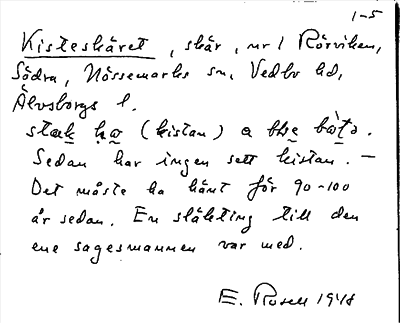 1-5
Kisteskäret, skär, nr 1 Rörviken,
Södra, Nössemarks sn, Vedbo hd,
Älvsborgs l.
stak ha (kistan) a
Sedan har ingen sett kistan. —
Det måste ha hänt för 90-100
år sedan. En släkting till den
ene sagesmannen var med.
E. Rosell 1948